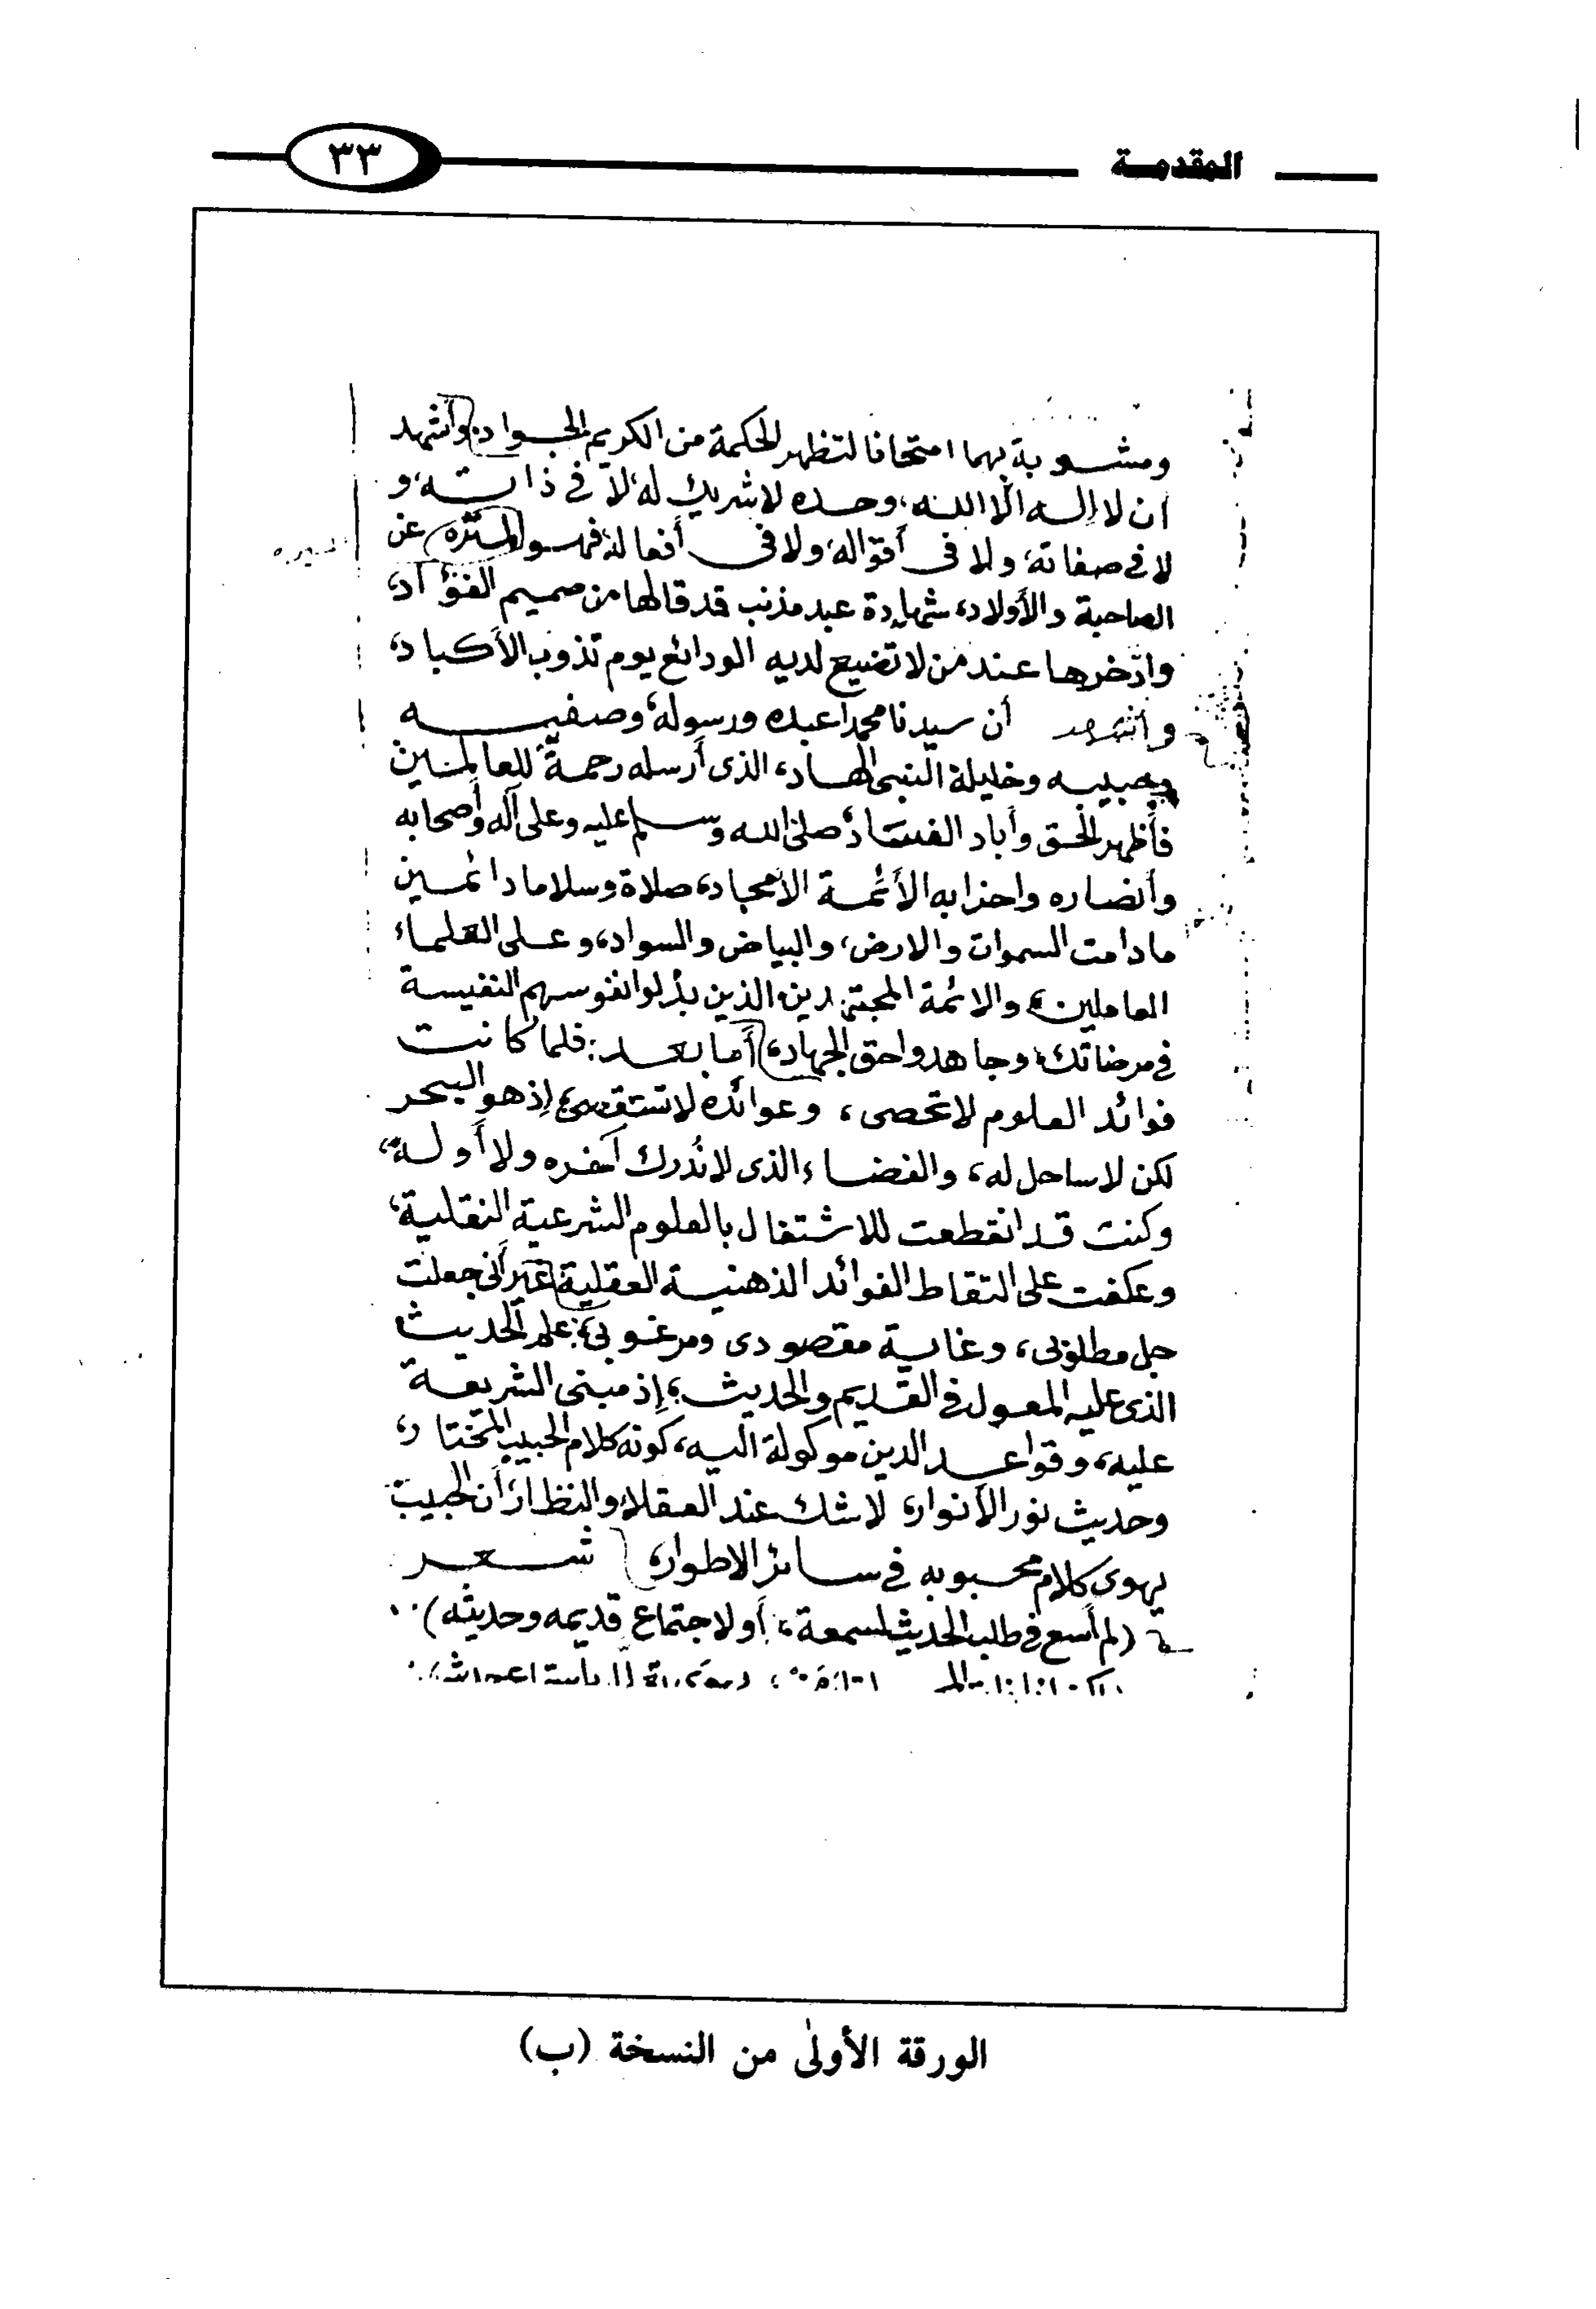 المقدمة
٣٣
ومشوبة بهما امتحانا لتظهر الحكمة من الكريم الجواد، وأشهد
أن لا إله الا الله، وحده لا شريك له، لا في ذاته، و
لا في صفاته، ولا في أقواله، ولا في أفعاله، فهو المنزه عن
الصاحبة والأولاد، شهادة عبد مذنب قد قالها من صميم الفؤاد،
وادخرها عند من لا تضيع لديه الودائع يوم تذوب الأكباد،
وأشهد أن سيدنا محمدا عبده ورسوله، وصفيه
وحبيبه وخليله النبي الهاد، الذي أرسله رحمةً للعالمين
فأظهر الحق وأباد الفساد، صلى الله وسلم عليه وعلى آله وأصحابه
وأنصاره واحزابه الأئمة الأمجاد، صلاة وسلاما دائمين
ما دامت السموات والارض، والبياض والسواد، وعلى العلماء
العاملين، والائمة المجتهدين، الذين بذلوا نفوسهم النفيسة
في مرضاتك، وجاهدوا حق الجهاد، أما بعد: فلما كانت
فوائد العلوم لا تحصى، وعوائده لا تستقصى، إذ هو البحر
لكن لا ساحل له، والفضاء الذي لا يُدرك آخره ولا أوله،
وكنت قد انقطعت للاشتغال بالعلوم الشرعية النقلية،
وعكفت على التقاط الفوائد الذهنية العقلية، غير أني جعلت
جل مطلوبي، وغاية مقصودي ومرغوبي، علم الحديث
الذي عليه المعول في القديم والحديث، إذ مبنى الشريعة
عليه، وقواعد الدين موكولة اليه، كونه كلام الحبيب المختار،
وحديث نور الأنوار، لا شك عند العقلاء والنظار، أن الحبيب
يهوى كلام محبوبه في سائر الاطوار، شعر
(لم أسع في طلب الحديث لسمعة، أو لاجتماع قديمه وحديثه)
الورقة الأولى من النسخة (ب)